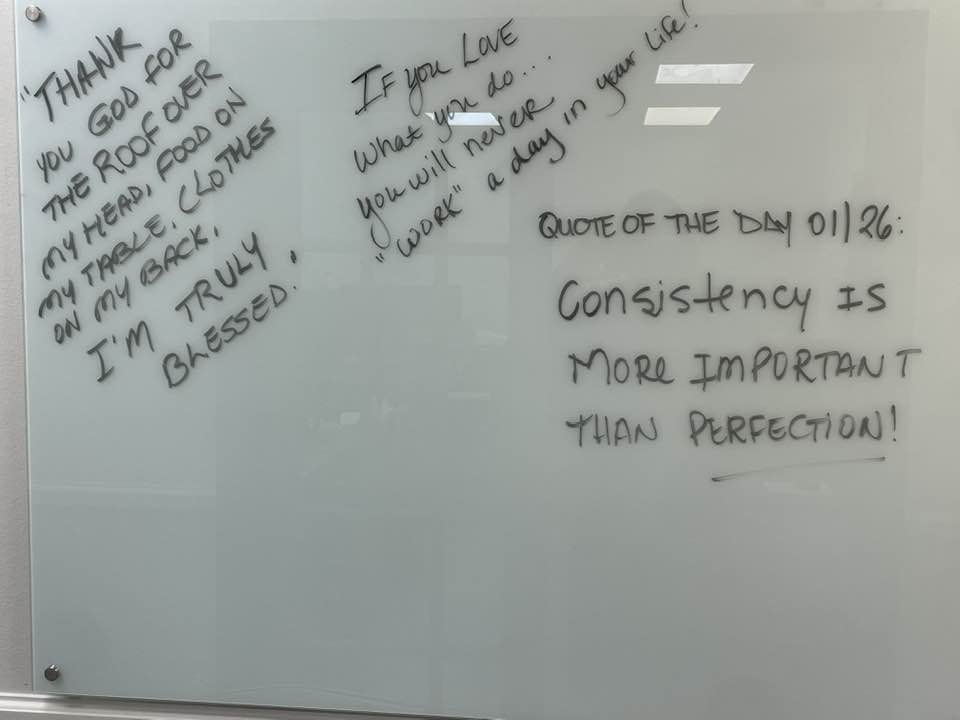 "THANK
YOU GOD FOR
THE ROOF OVER
MY HEAD, FOOD ON
MY TABLE, CLOTHES
ON MY BACK,
I'M TRULY,
BLESSED.
IF you LOVE
What you do...
you will never
"WORK" a day in your life!
QUOTE OF THE DAY 01/26:
Consistency IS
MORE IMPORTANT
THAN PERFECTION!